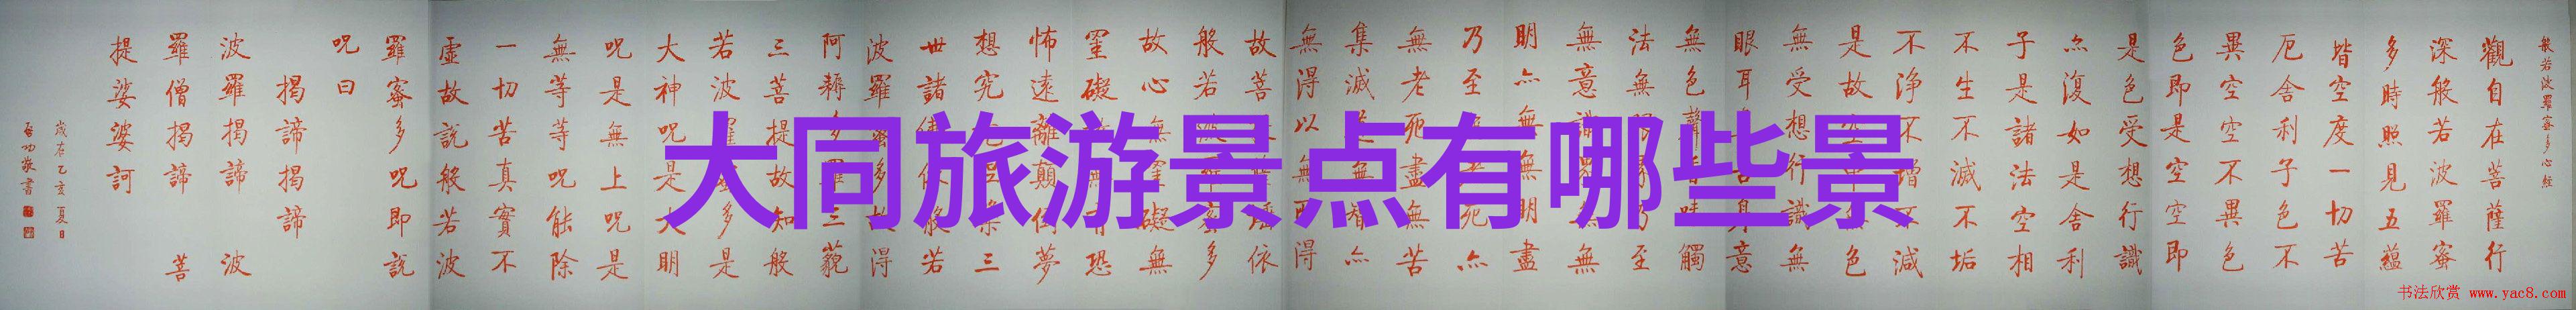 大同旅游景点有哪些景
般若波羅蜜多心經
觀自在菩薩行
深般若波羅蜜
多時照見五蘊
皆空度一切苦
厄舍利子色不
異空空不異色
色即是空空即
是色受想行識
亦復如是舍利
子是諸法空相
不生不滅不垢
不淨不增不減
是故空中無色
無受想行識無
眼耳鼻舌身意
無色聲香味觸
法無眼界乃至
無意識界無無
明亦無無明盡
乃至無老死亦
無老死盡無苦
集滅道無智亦
無得以無所得
故菩提薩埵依
般若波羅蜜多
故心無罣礙無
罣礙故無有恐
怖遠離顛倒夢
想究竟涅槃三
世諸佛依般若
波羅蜜多故得
阿耨多羅三藐
三菩提故知般
若波羅蜜多是
大神咒是大明
咒是無上咒是
無等等咒能除
一切苦真實不
虛故說般若波
羅蜜多咒即說
咒曰
揭諦揭諦
波羅揭諦 波
羅僧揭諦 菩
提娑婆訶
歲在乙亥夏日
啓功敬書
书法欣赏 www.yac8.com